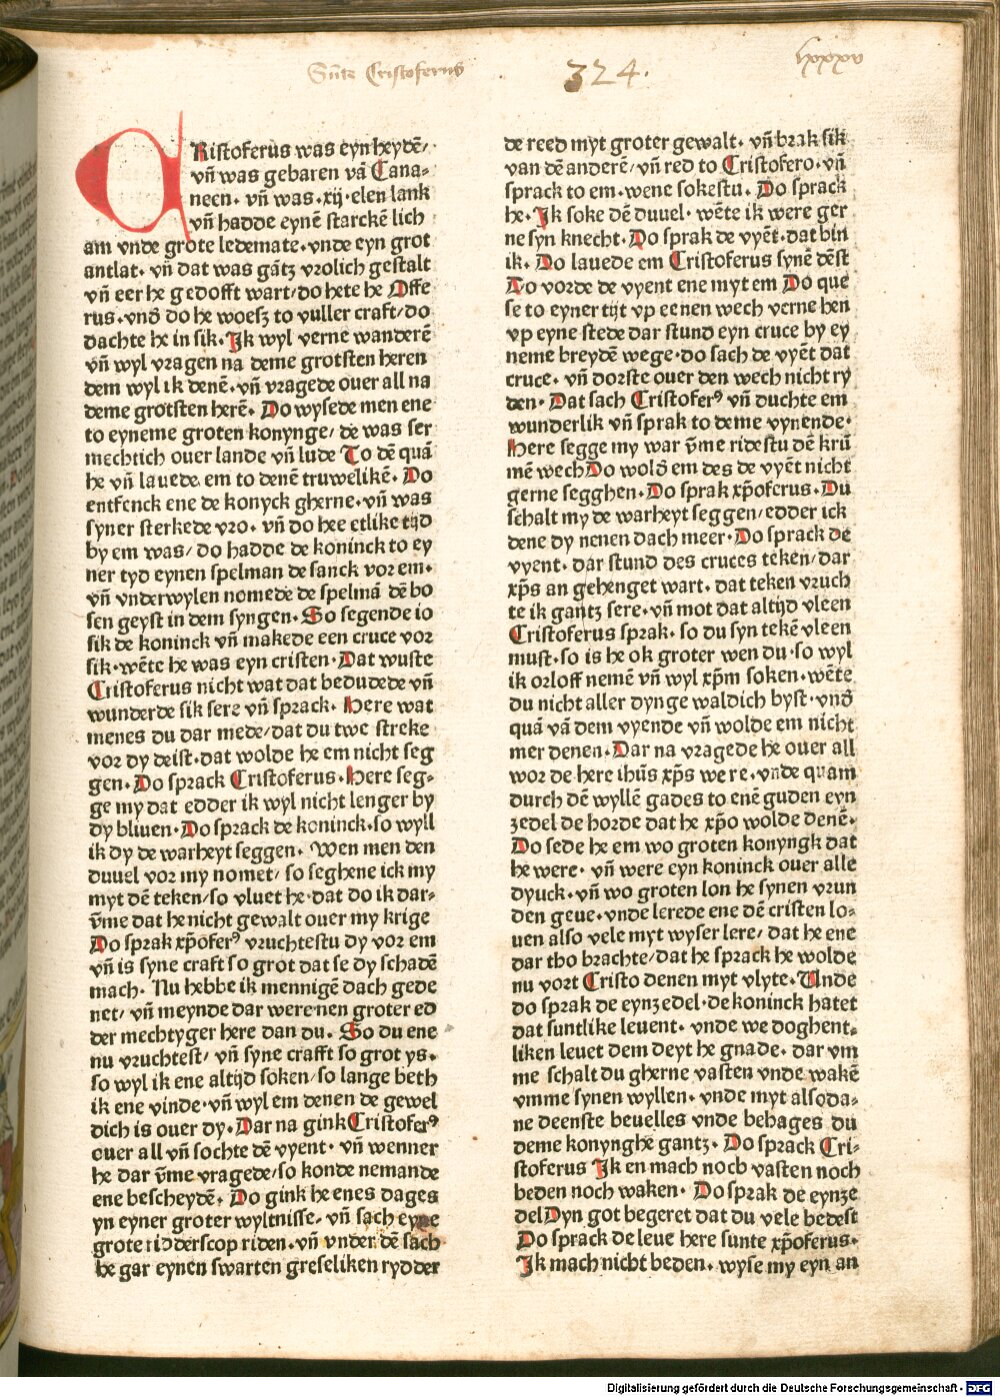 Sūte Cristoferus
324.
lxxxv
CRistoferus was eyn heydē/
vñ was gebaren vā Cana-
neen. vñ was .xij. elen lank
vñ hadde eynē starckē lich
am vnde grote ledemate. vnde eyn grot
antlat. vñ dat was gātz vrolich gestalt
vñ eer he gedofft wart/do hete he Offe
rus. vnō do he woesz to vuller craft/do
dachte he in sik. Ik wyl verne wanderē
vñ wyl vragen na deme grotsten heren
dem wyl ik denē. vñ vragede ouer all na
deme grotsten herē. Do wysede men ene
to eyneme groten konynge/ de was ser
mechtich ouer lande vñ lude To dē quā
he vñ lauede em to denē truwelikē. Do
entfenck ene de konyck gherne. vñ was
syner sterkede vro. vñ do hee etlike tijd
by em was/ do hadde de koninck to ey
ner tyd eynen spelman de sanck vor em.
vñ vnderwylen nomede de spelmā dē bo
sen geyst in dem syngen. So segende io
sik de koninck vñ makede een cruce vor
sik. wēte he was eyn cristen. Dat wuste
Cristoferus nicht wat dat bedudede vñ
wunderde sik sere vñ sprack. Here wat
menes du dar mede/dat du twe streke
vor dy deist. dat wolde he em nicht seg
gen. Do sprack Cristoferus. Here seg-
ge my dat edder ik wyl nicht lenger by
dy bliuen. Do sprack de koninck. so wyll
ik dy de warheyt seggen. Wen men den
duuel vor my nomet/ so seghene ick my
myt dē teken/so vluet he. dat do ik dar-
v̄me dat he nicht gewalt ouer my krige
Do sprak xp̄oferꝰ vruchtestu dy vor em
vñ is syne craft so grot dat se dy schadē
mach. Nu hebbe ik mennigē dach gede
net/ vñ meynde dar weren nen groter ed
der mechtyger here dan du. So du ene
nu vruchtest/ vñ syne crafft so grot ys.
so wyl ik ene altijd soken/so lange beth
ik ene vinde. vñ wyl em denen de gewel
dich is ouer dy. Dar na gink Cristoferꝰ
ouer all vñ sochte dē vyent. vñ wenner
he dar v̄me vragede/so konde nemande
ene bescheydē. Do gink he enes dages
yn eyner groter wyltnisse. vñ sach eyne
grote ridderscop riden. vñ vnder dē sach
he gar eynen swarten greseliken rydder
de reed myt groter gewalt. vñ brak sik
van dē anderē/ vñ red to Cristofero. vñ
sprack to em. wene sokestu. Do sprack
he. Ik soke dē duuel. wēte ik were ger
ne syn knecht. Do sprak de vyēt. dat bin
ik. Do lauede em Cristoferus synē dēst
Do vorde de vyent ene myt em Do que
se to eyner tijt vp eenen wech verne hen
vp eyne stede dar stund eyn cruce by ey
neme breydē wege. do sach de vyēt dat
cruce. vñ dorste ouer den wech nicht ry
den. Dat sach Cristoferꝰ vñ duchte em
wunderlik vñ sprak to deme vynende.
Here segge my war v̄me ridestu dē krū
mē wech Do wolō em des de vyēt nicht
gerne segghen. Do sprak xp̄oferus. Du
schalt my de warheyt seggen/edder ick
dene dy nenen dach meer. Do sprack de
vyent. dar stund des cruces teken/dar
xp̄s an gehenget wart. dat teken vruch
te ik gantz sere. vñ mot dat altijd vleen
Cristoferus sprak. so du syn tekē vleen
must. so is he ok groter wen du. so wyl
ik orloff nemē vñ wyl xp̄m soken. wēte
du nicht aller dynge waldich byst. vnō
quā vā dem vyende vñ wolde em nicht
mer denen. Dar na vragede he ouer all
wor de here ihūs xp̄s were. vnde quam
durch dē wyllē gades to enē guden eyn
zedel de horde dat he xp̄o wolde denē.
Do sede he em wo groten konyngk dat
he were. vñ were eyn koninck ouer alle
dyuck. vñ wo groten lon he synen vrun
den geue. vnde lerede ene dē cristen lo-
uen also vele myt wyser lere/ dat he ene
dar tho brachte/dat he sprack he wolde
nu vort Cristo denen myt vlyte. Unde
do sprak de eynzedel. de koninck hatet
dat suntlike leuent. vnde we doghent-
liken leuet dem deyt he gnade. dar vm
me schalt du gherne vasten vnde wakē
vmme synen wyllen. vnde myt alsoda-
ne deenste beuelles vnde behages du
deme konynghe gantz. Do sprack Cri-
stoferus Ik en mach noch vasten noch
beden noch waken. Do sprak de eynze
del Dyn got begeret dat du vele bedest
Do sprack de leue here sunte xp̄oferus.
Ik mach nicht beden. wyse my eyn an
Digitalisierung gefördert durch die Deutsche Forschungsgemeinschaft - DFG